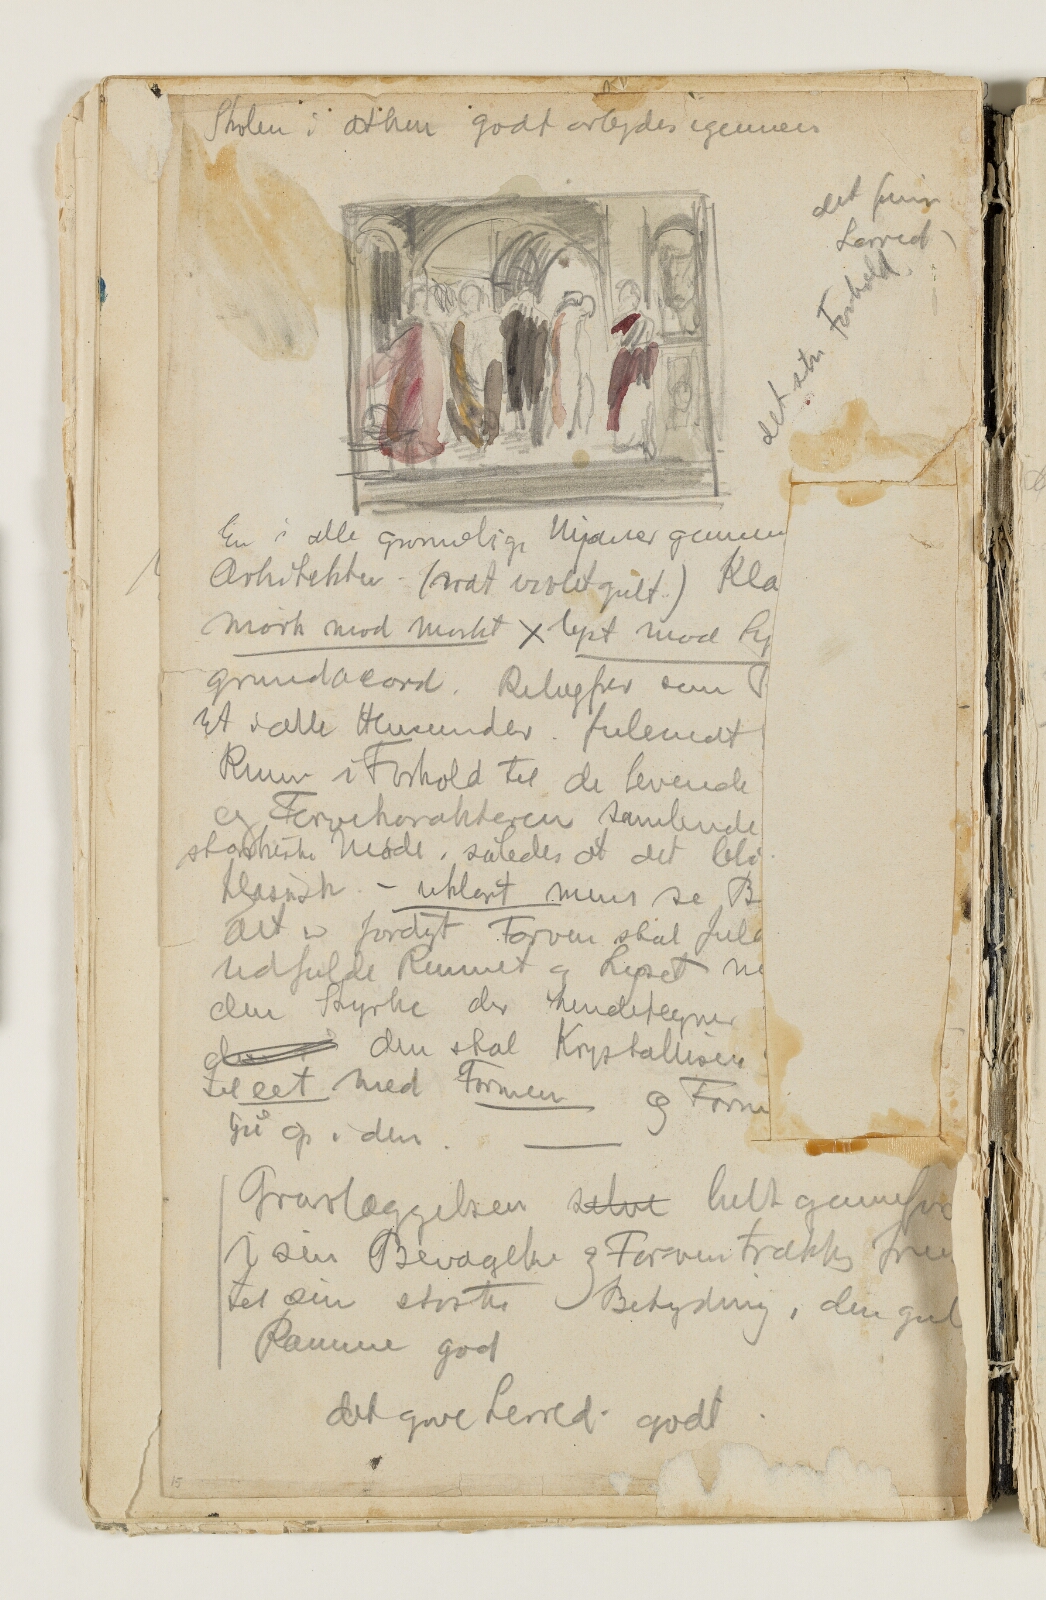 Skolen i Athen godt arbejdes igennem
det
Lærred
det Forhold
En i alle grønnelige Njanser gennem
Arkitektur - (rødt violet gult.) Kla
mørk mod mørkt × lyst mod Ly
grundacord. som
Et i alle Henseender. fulendt
Rum i Forhold til de levende
og Farvekarakteren samlende
Måde, således at det
klassisk. - uklart mens se B
Alt er fordyt Farven skal ful
udfulde Rummet og Lyset
den Styrke der kendetegner
den skal Krystallisere
til eet med Formen og Form
gå op i den.
Gravlæggelsen selve helt gennemfør
i sin Bevægelse og Farven trækkes frem
til sin største Betydning, den gul
Ramme god
det grove Lerred. godt.
15